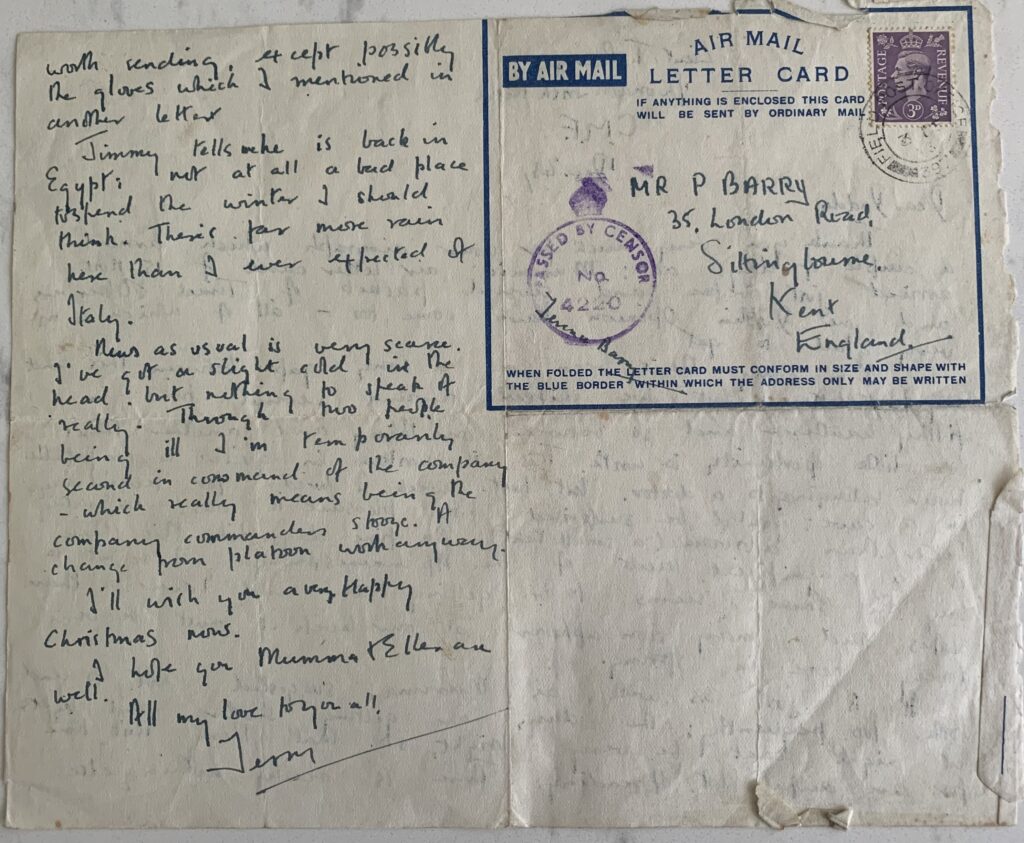 worth sending, except possibly
the gloves which I mentioned in
another letter
Jimmy tells me he is back in
Egypt: not at all a bad place
to spend the winter I should
think. There's far more rain
here than I ever expected of
Italy.
News as usual is very scarce.
I've got a slight cold in the
head but nothing to speak of
really. Through two people
being ill I'm temporarily
second in command of the company
- which really means being the
company commanders stooge. A
change from platoon work anyway.
I'll wish you a very Happy
Christmas now.
I hope you Mumma & Ellen are
well.
All my love to you all.
Terry
BY AIR MAIL
AIR MAIL
LETTER CARD
IF ANYTHING IS ENCLOSED THIS CARD
WILL BE SENT BY ORDINARY MAIL
POSTAGE
REVENUE
3D
FIELD
MR P BARRY
35, London Road,
Sittingbourne.
Kent
England.
PASSED BY CENSOR
No
4220
Barry
WHEN FOLDED THE LETTER CARD MUST CONFORM IN SIZE AND SHAPE WITH
THE BLUE BORDER WITHIN WHICH THE ADDRESS ONLY MAY BE WRITTEN